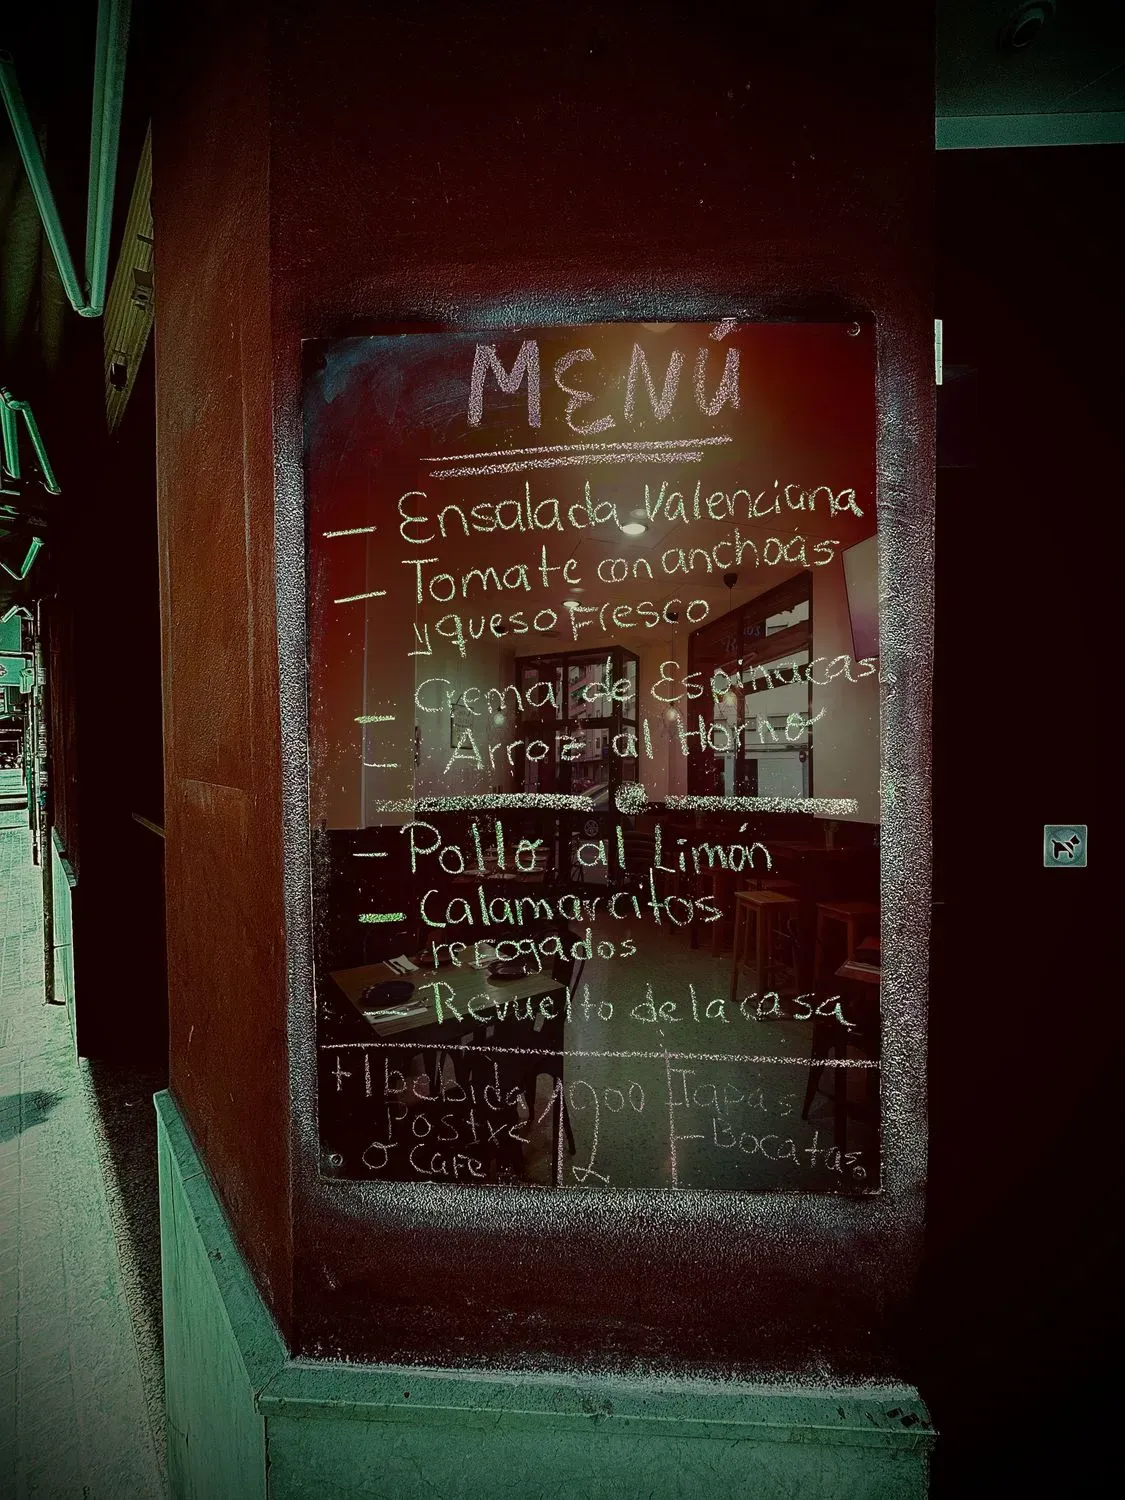 MENÚ
— Ensalada Valenciana
— Tomate con anchoás
y queso Fresco
— Crema de Espinacas
— Arroz al Horno
— Pollo al Limón
— Calamarcitos
refogados
— Revuelto de la casa
+1 bebida
Postre
o Café
12
Tapás
– Bocatas